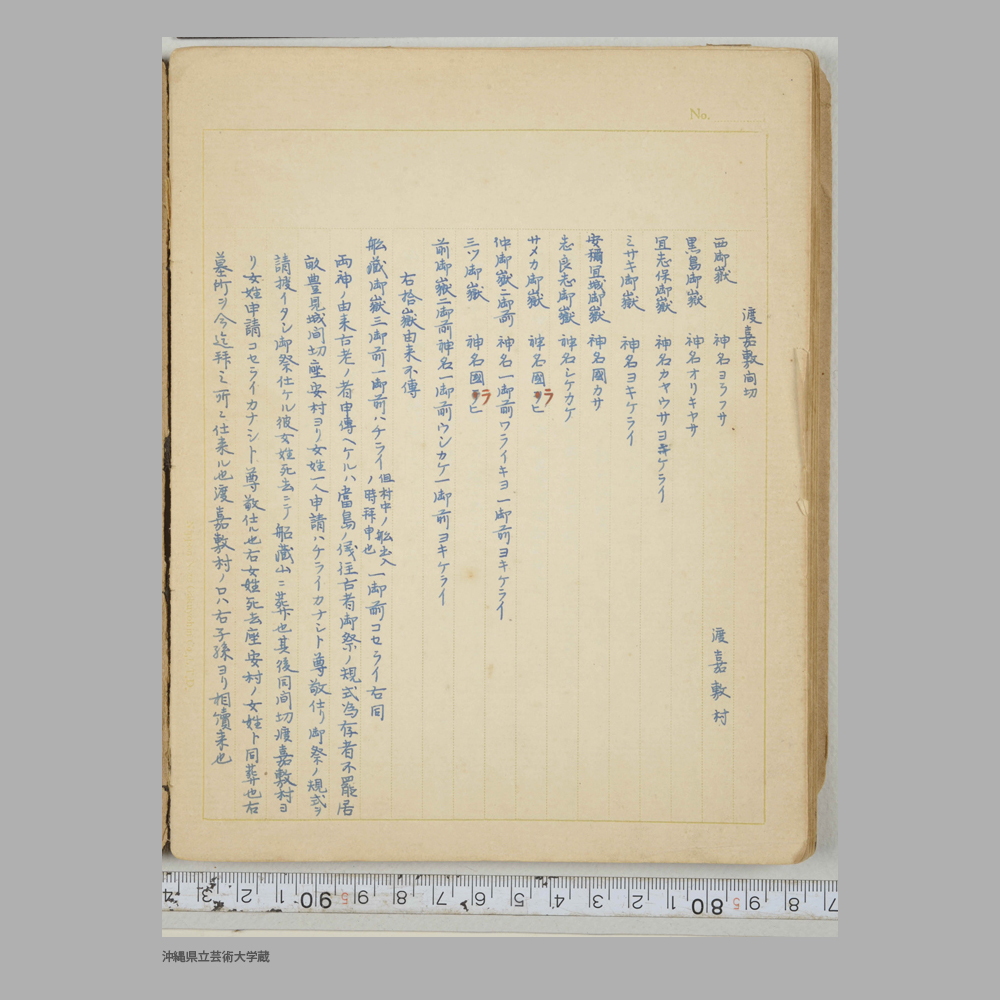 No.
渡嘉敷間切
西御嶽　神名ヨラフサ　渡嘉敷村
黒島御嶽　神名オリキヤサ
冝志保御嶽　神名カヤウサヨキケライ
ミサキ御嶽　神名ヨキケライ
安穪冝城御嶽　神名國カサ
志良志御嶽　神名シケカケ
サメカ御嶽　神名國ラヒ
仲御嶽二御前　神名一御前ワライキヨ一御前ヨキケライ
三ツ御嶽　神名國ラヒ
前御嶽二御前神名一御前ウシカケ一御前ヨキケライ
右拾嶽由来不傳
舩蔵御嶽三御前一御前ハチライ但村中ノ舩出入ノ時拜申也一御前コセライ右同
両神ノ由来古老ノ者申傳ヘケルハ當島ノ儀往古者御祭ノ規式為存者不罷居
故豊見城間切座安村ヨリ女姓一人申請ハチライカナシト尊敬仕リ御祭ノ規式ヲ
請授イタシ御祭仕ケル彼女姓死去ニテ舩蔵山ニ葬也其後同間切渡嘉敷村ヨ
リ女姓申請コセライカナシト尊敬仕ル也右女姓死去座安村ノ女姓ト同葬也右
墓所ヲ今迄拜ミ所ニ仕来ル也渡嘉敷村ノロハ右子孫ヨリ相續来也
4 3 2 1 90 5 8 7 6 5 4 3 2 1 80 5 9 8 7
沖縄県立芸術大学蔵